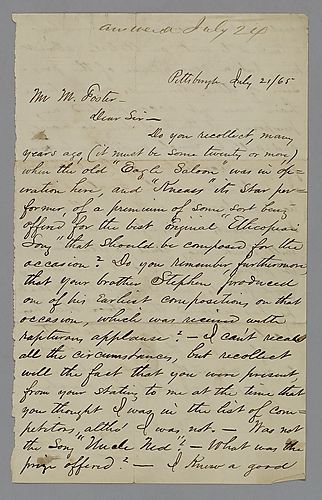 answered July 24
Pittsburgh July 21/65
Mr M. Foster -
Dear Sir -
Do you recollect, many
years ago, (it must be some twenty or more)
when the old "Eagle Saloon" was in op=
eration here, and "Kneass" its star per=
former, of a premium of some sort being
offered for the best original "Ethiopian
Song" that should be composed for the
occasion? Do you remember furthermore
that your brother Stephen produced
one of his earliest compositions, on that
occasion, which was received with
rapturous applause? - I can't recall
all the circumstances, but recollect
well the fact that you were present
from your stating to me at the time that
you thought I was in the list of com=
petitors, altho' I was not. - Was not
the Song "Uncle Ned"? - What was the
prize offered? - I knew a good